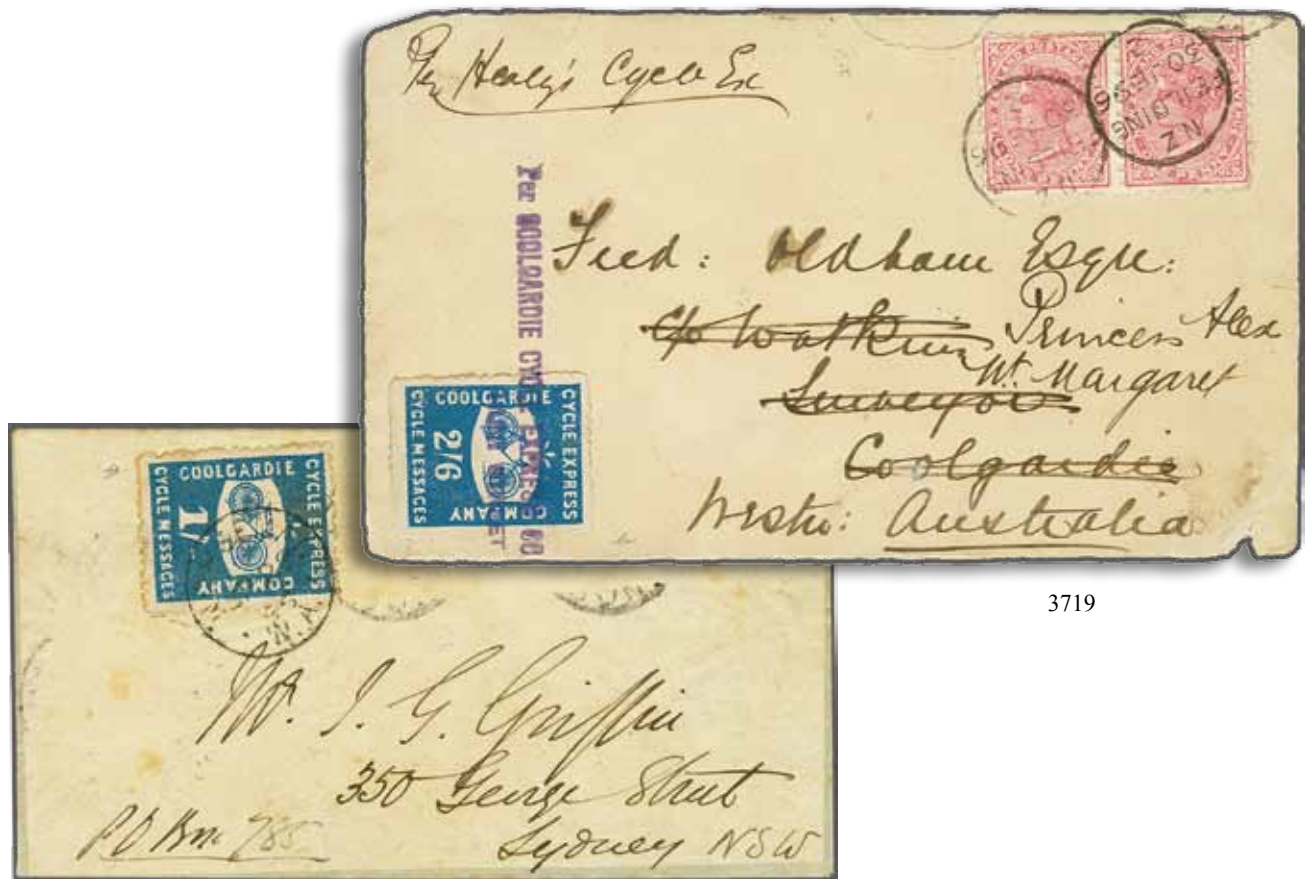 Per Healy's Cycle Ex
NZ
FEILDING
Per COOLGARDIE CYCLE EXPRESS CO
Fred: Oldham Esqre:
c/o Watkins Princess Alex
Surveyor Mt. Margaret
Coolgardie
Westn: Australia
COOLGARDIE
CYCLE EXPRESS
COMPANY
CYCLE MESSAGES
2/6
3719
COOLGARDIE
CYCLE EXPRESS
COMPANY
CYCLE MESSAGES
1/
Mr. J. G. Griffin
350 George Street
Sydney NSW
PO Box 785